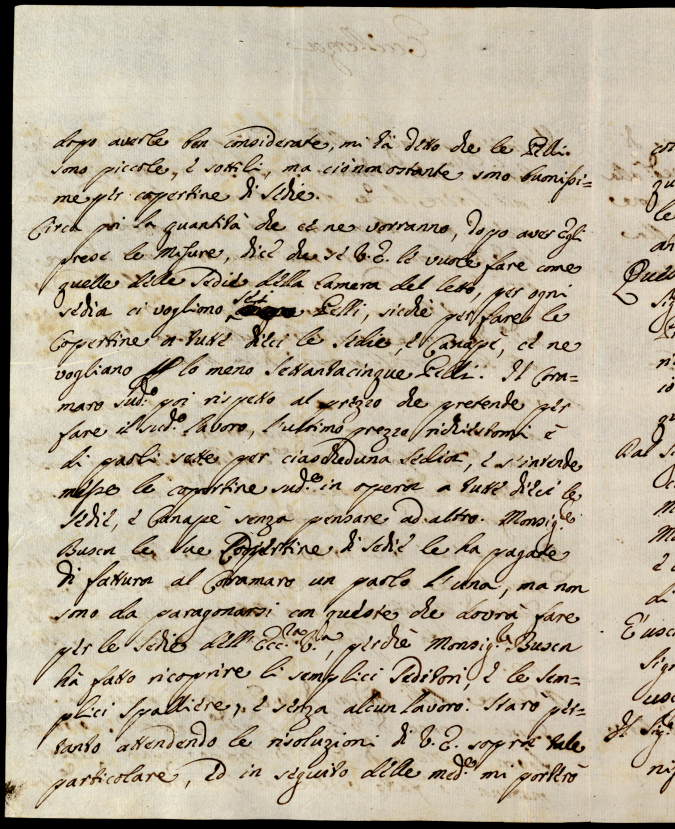 dopo averle ben considerate, mi hà detto che le Pelli
sono piccole, e sottili, ma ciònonostante sono buonissi=
me per copertine di sedie.
Circa poi la quantità che ce ne vorranno, dopo aver Egli
prese le Misure, dice che se V. E. le vuole fare come
quelle delle Sedie della Camera del letto, per ogni
sedia ci vogliono sei Pelli, sicchè per fare le
Copertine a tutte dieci le Sedie, e Canapè, ce ne
vogliano lo meno Settantacinque Pelli. Il Cora=
maro sud.º poi rispetto al prezzo che pretende per
fare il sud.º lavoro, l'ultimo prezzo richiestomi è
di paoli sette per ciascheduna sedia, e s'intende
messe le copertine sud.e in opera a tutte dieci le
Sedie, e Canapè senza pensare ad altro. Monsig.e
Busca le sue Copertine di Sedie le ha pagate
di fattura al Coramaro un paolo l'una, ma non
sono da paragonarsi con queste che dovrà fare
per le Sedie dell'Ecc.za V.ra, perchè Monsig.e Busca
hà fatto ricoprire li semplici Seditori, e le sem=
plici Spalliere, e senza alcun lavoro. Starò per=
tanto attendendo le risoluzioni di V. E. sopra tale
particolare, ed in seguito delle med.e mi porterò
Il Sig.